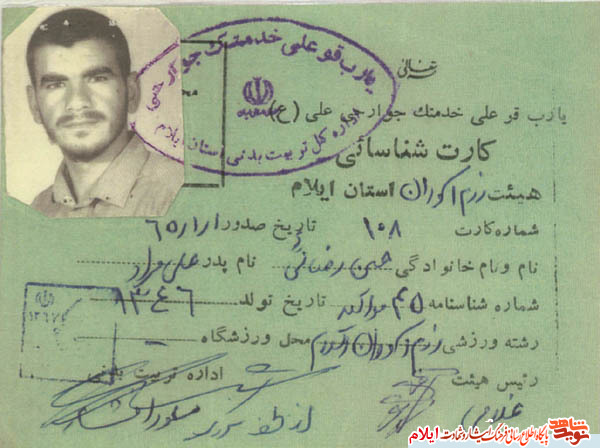 یارب قو علی خدمتك جوارحی
اداره کل تربیت بدنی استان ایلام
یارب قو علی خدمتك جوارحی علی (ع)
کارت شناسائی
هیئت رزم آوران استان ایلام
شماره کارت ۱۰۸ تاریخ صدور ۶۵/۱/۱
نام و نام خانوادگی حسن رضائی نام پدر علی مراد
شماره شناسنامه ۴۵ تاریخ تولد ۱۳۴۶
رشته ورزشی رزم آوران محل ورزشگاه -
رئیس هیئت اداره تربیت بدنی
از طرف
نوید شاهد
پایگاه اطلاع رسانی فرهنگ ایثار و شهادت ایلام